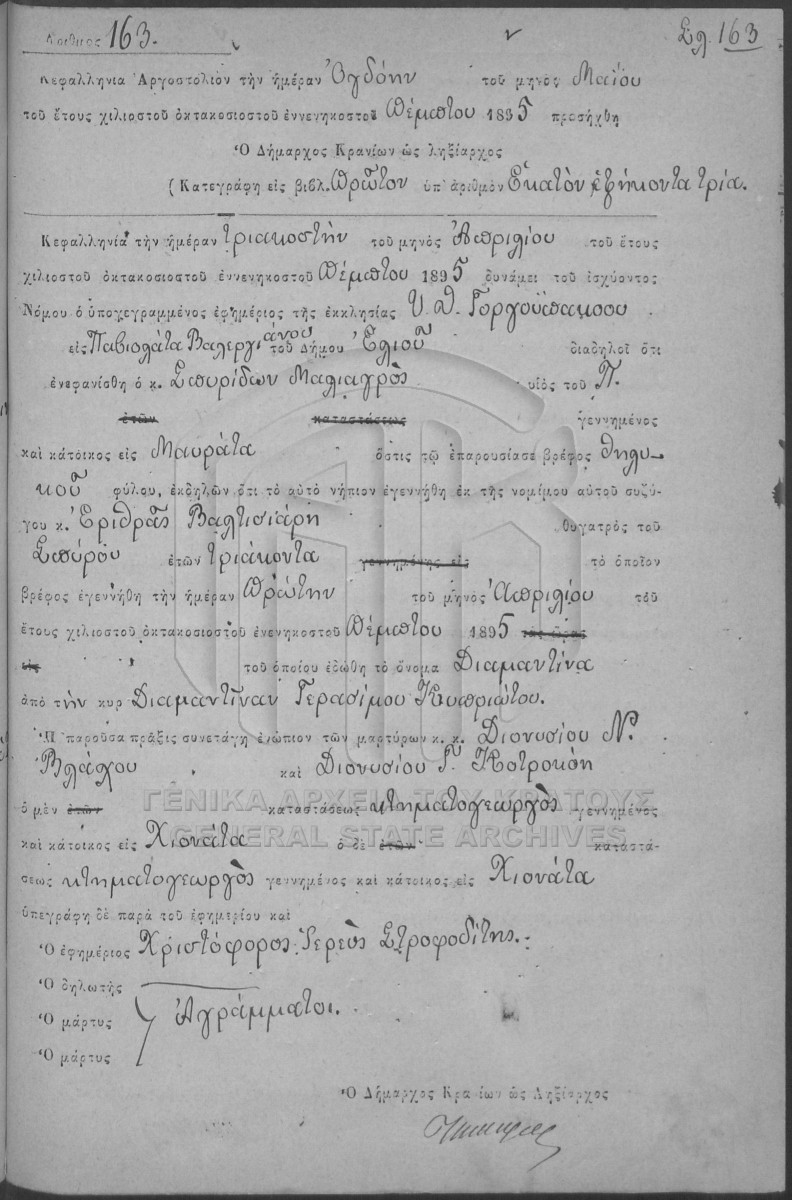 Ἀριθμὸς 163.
Σλ. 163
Κεφαλληνία Ἀργοστόλιον τὴν ἡμέραν Ὀγδόην τοῦ μηνὸς Μαΐου
τοῦ ἔτους χιλιοστοῦ ὀκτακοσιοστοῦ ἐννενηκοστοῦ Πέμπτου 1895 προσήχθη
Ὁ Δήμαρχος Κρανίων ὡς ληξίαρχος
(Κατεγράφη εἰς βιβλ. Πρῶτον ὑπ' ἀριθμὸν Ἑκατὸν ἑξήκοντα τρία.
Κεφαλληνία τὴν ἡμέραν τριακοστὴν τοῦ μηνὸς Ἀπριλίου τοῦ ἔτους
χιλιοστοῦ ὀκτακοσιοστοῦ ἐννενηκοστοῦ Πέμπτου 1895 δυνάμει τοῦ ἰσχύοντος
Νόμου ὁ ὑπογεγραμμένος ἐφημέριος τῆς ἐκκλησίας Υ. Θ. Γοργοϋπακοου
εἰς Παβιολάτα Βαλεργιάνου τοῦ Δήμου Ἐλιοῦ διαδηλοῖ ὅτι
ἐνεφανίσθη ὁ κ. Σπυρίδων Μαλιαγρὸς υἱὸς τοῦ Π.
ἐτῶν καταστάσεως γεννημένος
καὶ κάτοικος εἰς Μαυράτα ὅστις τῷ ἐπαρουσίασε βρέφος θηλυ-
κοῦ φύλου, ἐκδηλῶν ὅτι τὸ αὐτὸ νήπιον ἐγεννήθη ἐκ τῆς νομίμου αὐτοῦ συζύ-
γου κ. Ἐριθρᾶς Βαλτισιάρη θυγατρὸς τοῦ
Σπύρου ἐτῶν τριάκοντα γεννημένης εἰς τὸ ὁποῖον
βρέφος ἐγεννήθη τὴν ἡμέραν Πρώτην τοῦ μηνὸς Ἀπριλίου τοῦ
ἔτους χιλιοστοῦ ὀκτακοσιοστοῦ ἐνενηκοστοῦ Πέμπτου 1895 τὰς ὥρας
εἰς τοῦ ὁποίου ἐδώθη τὸ ὄνομα Διαμαντίνα
ἀπὸ τὴν κυρ Διαμαντίναν Γερασίμου Κυπριώτου.
Ἡ παροῦσα πρᾶξις συνετάγη ἐνώπιον τῶν μαρτύρων κ. κ. Διονυσίου Ν.
Βλάχου καὶ Διονυσίου Γ. Κοτροκόη
ὁ μὲν ἐτῶν καταστάσεως κτηματογεωργὸς γεννημένος
καὶ κάτοικος εἰς Χιονάτα ὁ δὲ ἐτῶν καταστά-
σεως κτηματογεωργὸς γεννημένος καὶ κάτοικος εἰς Χιονάτα
ὑπεγράφη δὲ παρὰ τοῦ ἐφημερίου καὶ
Ὁ ἐφημέριος Χριστόφορος Ἱερεὺς Στροφοδίτης.
Ὁ δηλωτὴς
Ὁ μάρτυς Ἀγράμματοι.
Ὁ μάρτυς
Ὁ Δήμαρχος Κρανίων ὡς Ληξίαρχος
ΓΕΝΙΚΑ ΑΡΧΕΙΑ ΤΟΥ ΚΡΑΤΟΥΣ
GENERAL STATE ARCHIVES